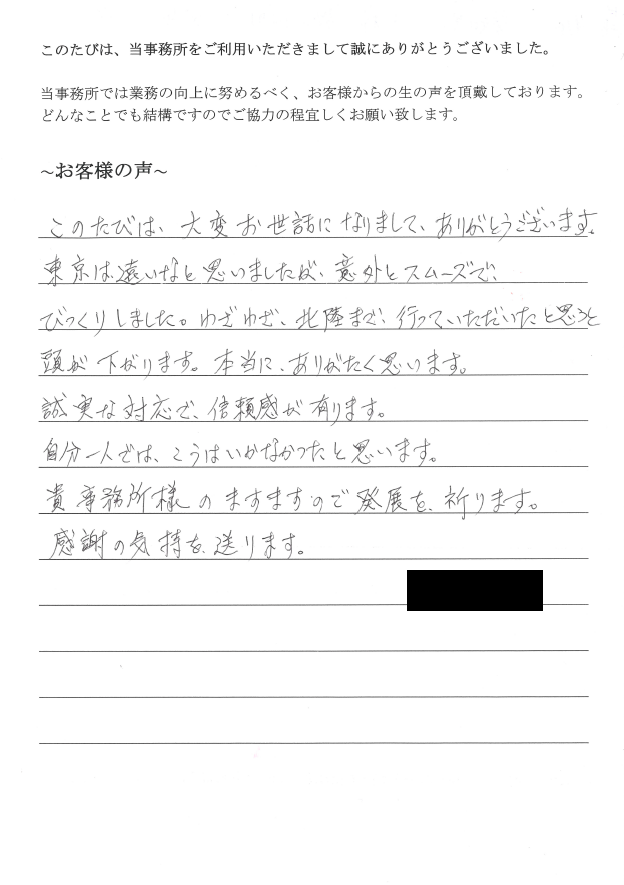 このたびは、当事務所をご利用いただきまして誠にありがとうございました。
当事務所では業務の向上に努めるべく、お客様からの生の声を頂戴しております。
どんなことでも結構ですのでご協力の程宜しくお願い致します。
~お客様の声~
このたびは、大変お世話になりまして、ありがとうございます。
東京は遠いなと思いましたが、意外とスムーズで、
びっくりしました。わざわざ、北陸まで、行っていただいたと思うと
頭が下がります。本当に、ありがたく思います。
誠実な対応で、信頼感が有ります。
自分一人では、こうはいかなかったと思います。
貴事務所様のますますので発展を、祈ります。
感謝の気持を、送ります。